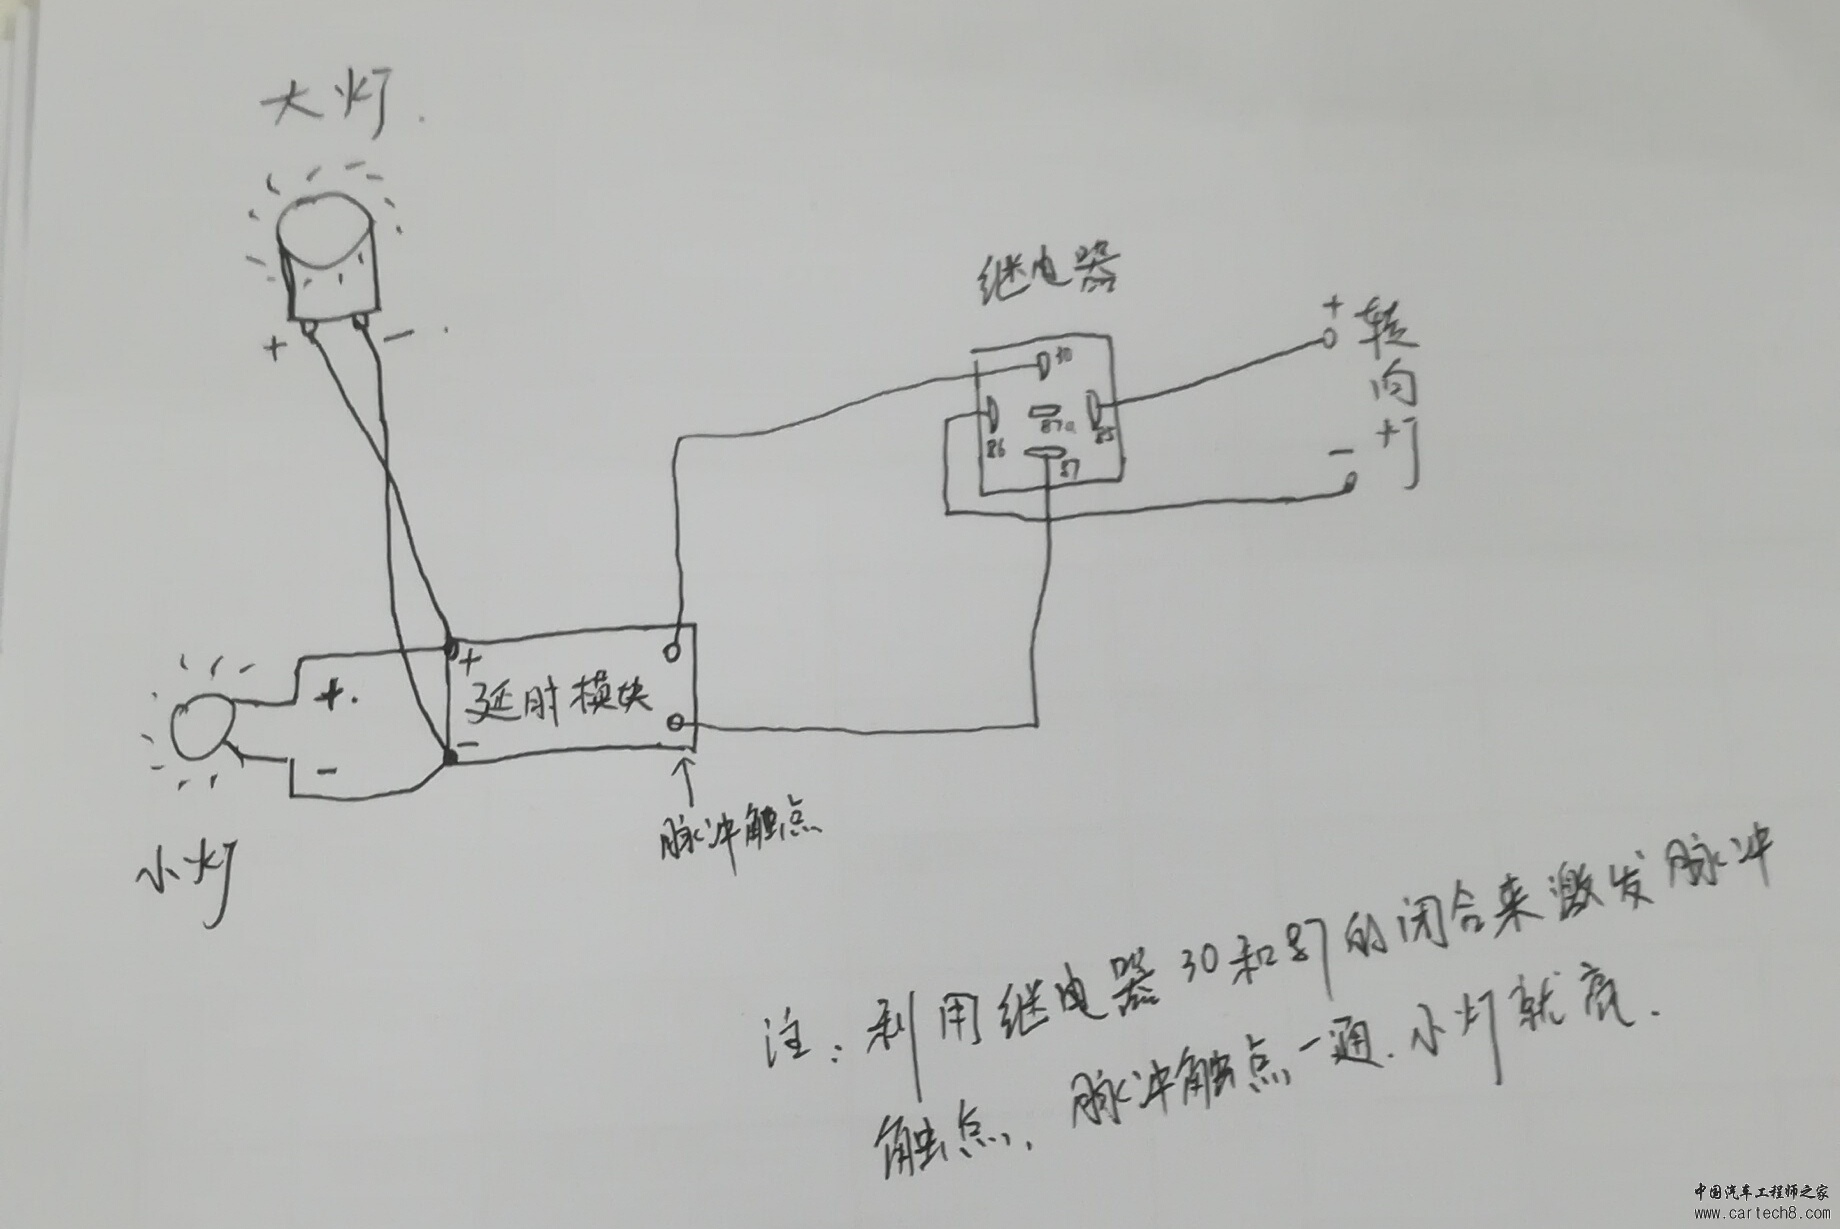 大灯
+
-
继电器
30
86
87a
85
87
+
转向灯
-
+
-
+
延时模块
-
脉冲触点
小灯
注：利用继电器30和87的闭合来激发脉冲
触点、脉冲触点一通.小灯就亮.
中国汽车工程师之家
www.cartech8.com